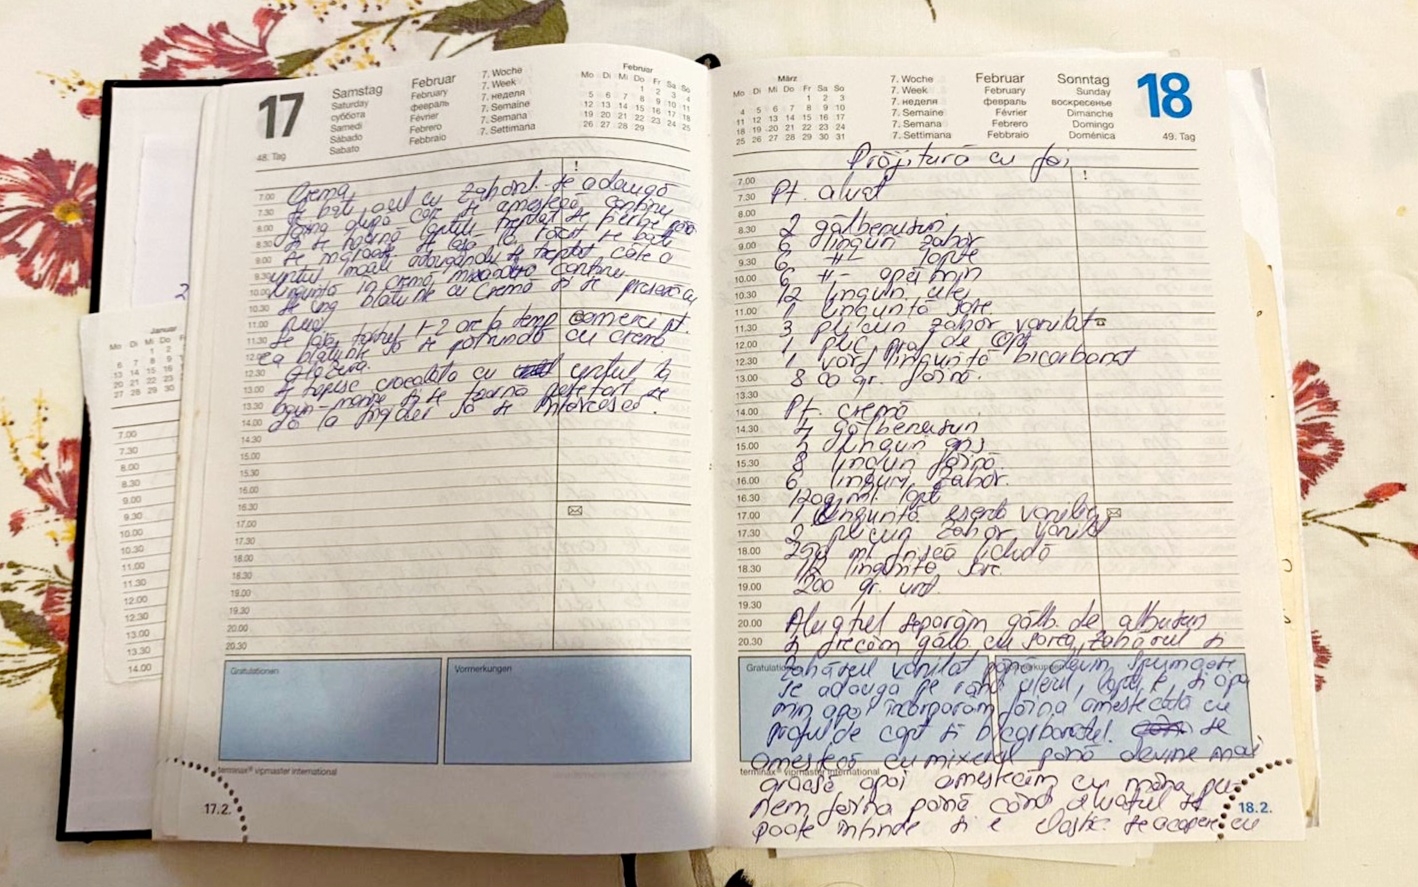 17
Samstag
Saturday
суббота
Samedi
Sábado
Sabato
Februar
February
февраль
Février
Febrero
Febbraio
7. Woche
7. Week
7. неделя
7. Semaine
7. Semana
7. Settimana
Februar
Mo Di Mi Do Fr Sa So
1 2 3 4
5 6 7 8 9 10 11
12 13 14 15 16 17 18
19 20 21 22 23 24 25
26 27 28 29
48. Tag
!
7.00 Crema
7.30 Se bat oul cu zahărul. Se adaugă
8.00 făina după care se amestecă continu
8.30 și se toarnă laptele treptat se fierbe până
9.00 se îngroașă. Se lasă la răcit se bate
9.30 untul moale adăugându-se treptat câte o
10.00 linguriță în cremă mixând continu
10.30 Se ung blaturile cu cremă și se presează cu
11.00
11.30 Se lasă tortul 1-2 ore la temp camerei pt.
12.00 ca blaturile să se pătrundă cu cremă
12.30 Glazura.
13.00 Se topește ciocolata cu untul la
13.30 bain-marie și se toarnă peste tort se
14.00 dă la frigider să se întărească.
14.30
15.00
15.30
16.00
16.30
17.00
17.30
18.00
18.30
19.00
19.30
20.00
20.30
Gratulationen
Vormerkungen
terminax® vipmaster international
17.2.
Januar
Mo Di Mi Do
1 2
6 7 8 9
13 14 15 16
20 21 22 23
27 28 29 30
7.00
7.30
8.00
8.30
9.00
9.30
10.00
10.30
11.00
11.30
12.00
12.30
13.00
13.30
14.00
März
Mo Di Mi Do Fr Sa So
1 2 3
4 5 6 7 8 9 10
11 12 13 14 15 16 17
18 19 20 21 22 23 24
25 26 27 28 29 30 31
7. Woche
7. Week
7. неделя
7. Semaine
7. Semana
7. Settimana
Februar
February
февраль
Février
Febrero
Febbraio
Sonntag
Sunday
воскресенье
Dimanche
Domingo
Doménica
18
49. Tag
Prăjitură cu foi
!
7.00
7.30 Pt. aluat
8.00
8.30 2 gălbenușuri
9.00 6 linguri zahăr
9.30 6 -//- lapte
10.00 6 -//- apă min
10.30 12 linguri ulei
11.00 1 linguriță sare
11.30 3 plicuri zahăr vanilat
12.00 1 plic praf de copt
12.30 1 vârf linguriță bicarbonat
13.00 800 gr. făină.
13.30
14.00 Pt. cremă
14.30 4 gălbenușuri
15.00 linguri
15.30 8 linguri făină
16.00 6 linguri zahăr.
16.30 ml. lapte
17.00 1 linguriță esență vanilie
17.30 2 plicuri zahăr vanilat
18.00 250 ml frișcă lichidă
18.30 1/2 linguriță sare
19.00 200 gr. unt
19.30
20.00 Aluatul separăm gălb. de albușuri
20.30 și frecăm gălb. cu sarea, zahărul și
Gratulationen
Vormerkungen
zahărul vanilat până devin spumoase
se adaugă pe rând uleiul, laptele și apa
min apoi încorporăm făina amestecată cu
praful de copt și bicarbonatul. se
amestecă cu mixerul până devine mai
terminax® vipmaster international
groasă apoi amestecăm cu mâna pu-
nem făina până când aluatul se
poate întinde și e elastic. Se acoperă cu
18.2.